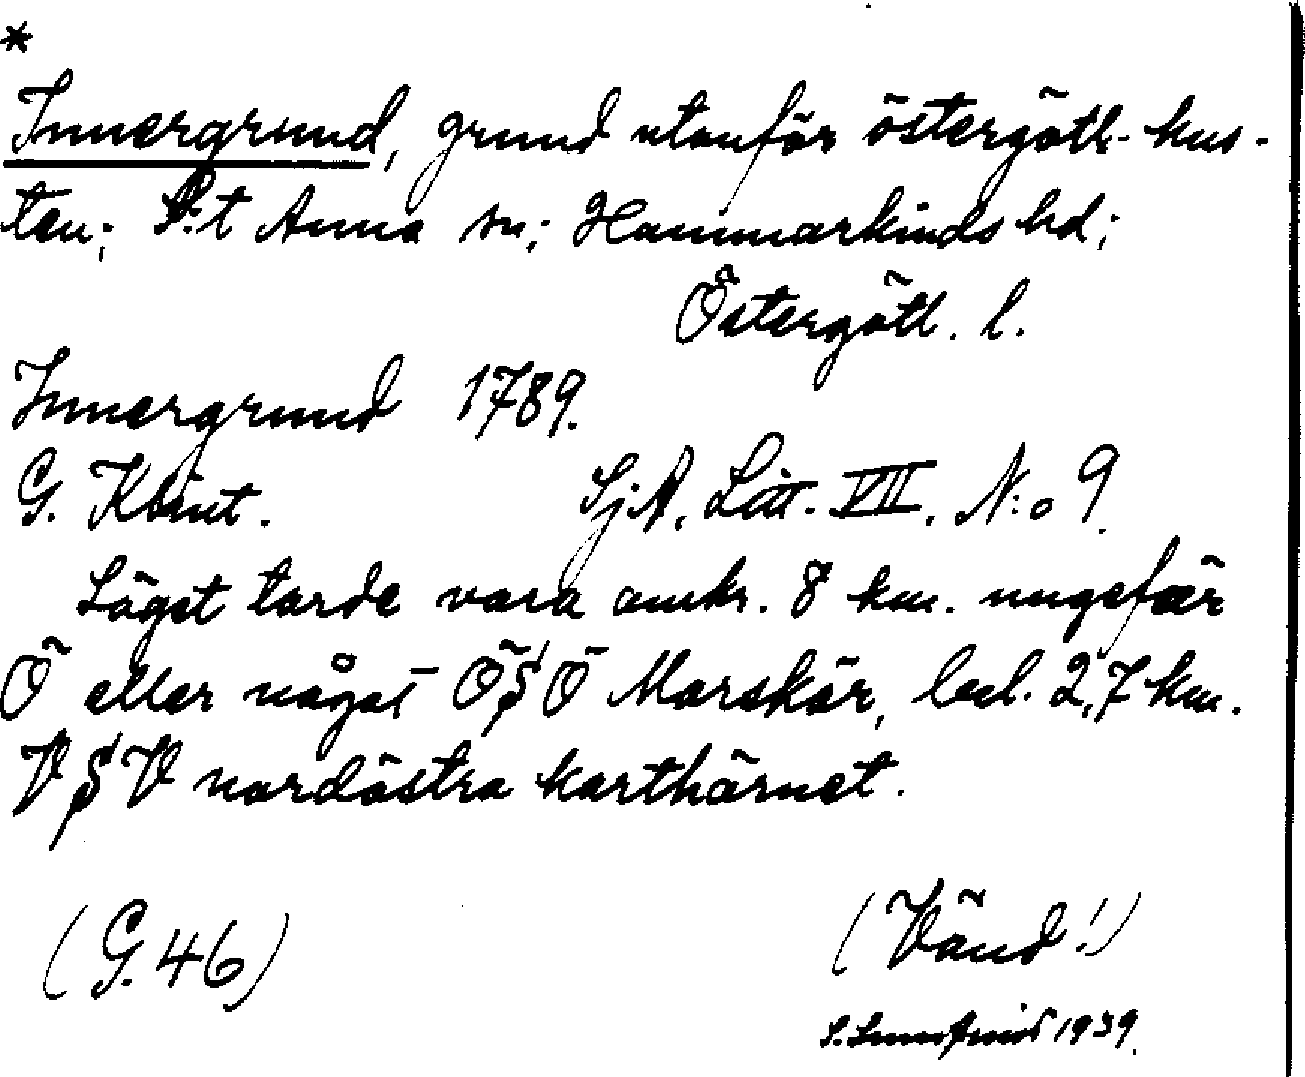 *
Innergrund, grund utanför östergötl. kus-
ten; S:t Anna sn; Hammarkinds hd;
Östergötl. l.
Innergrund 1789.
G. Klint. SjA. Litt. VII. N:o 9.
Läget torde vara omkr. 8 km. ungefär
Ö eller något ÖSÖ Morskär, bel. 2,7 km.
VSV nordöstra karthörnet.
(G. 46) (Vänd!)
1939.